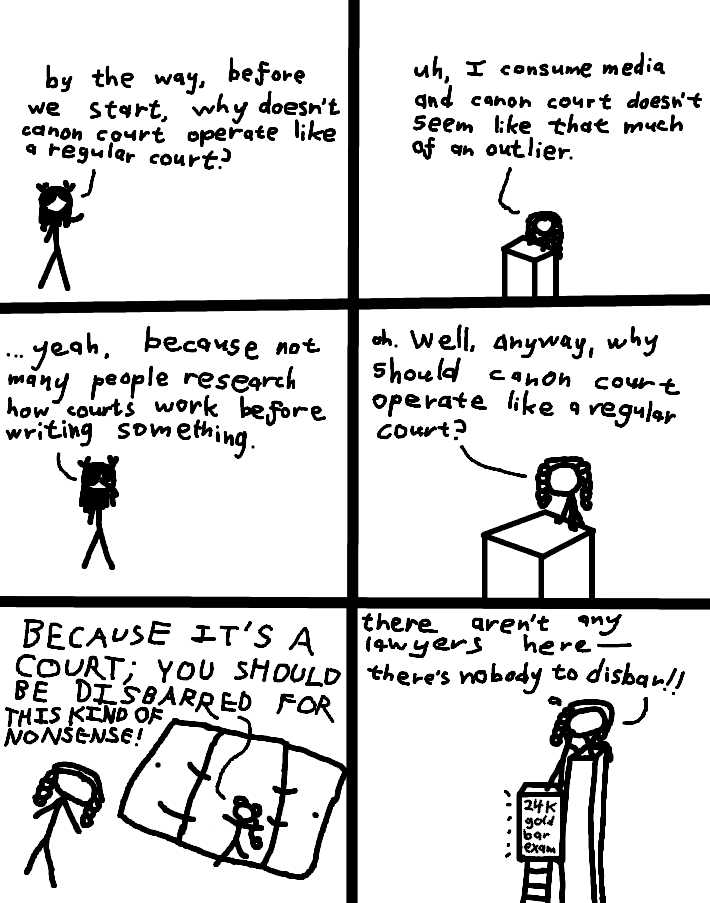 by the way, before
we start, why doesn't
canon court operate like
a regular court?
uh, I consume media
and canon court doesn't
seem like that much
of an outlier.
...yeah, because not
many people research
how courts work before
writing something.
oh. Well, anyway, why
should canon court
operate like a regular
court?
BECAUSE IT'S A
COURT; YOU SHOULD
BE DISBARRED FOR
THIS KIND OF
NONSENSE!
there aren't any
lawyers here—
there's nobody to disbar!!
24K
gold
bar
exam